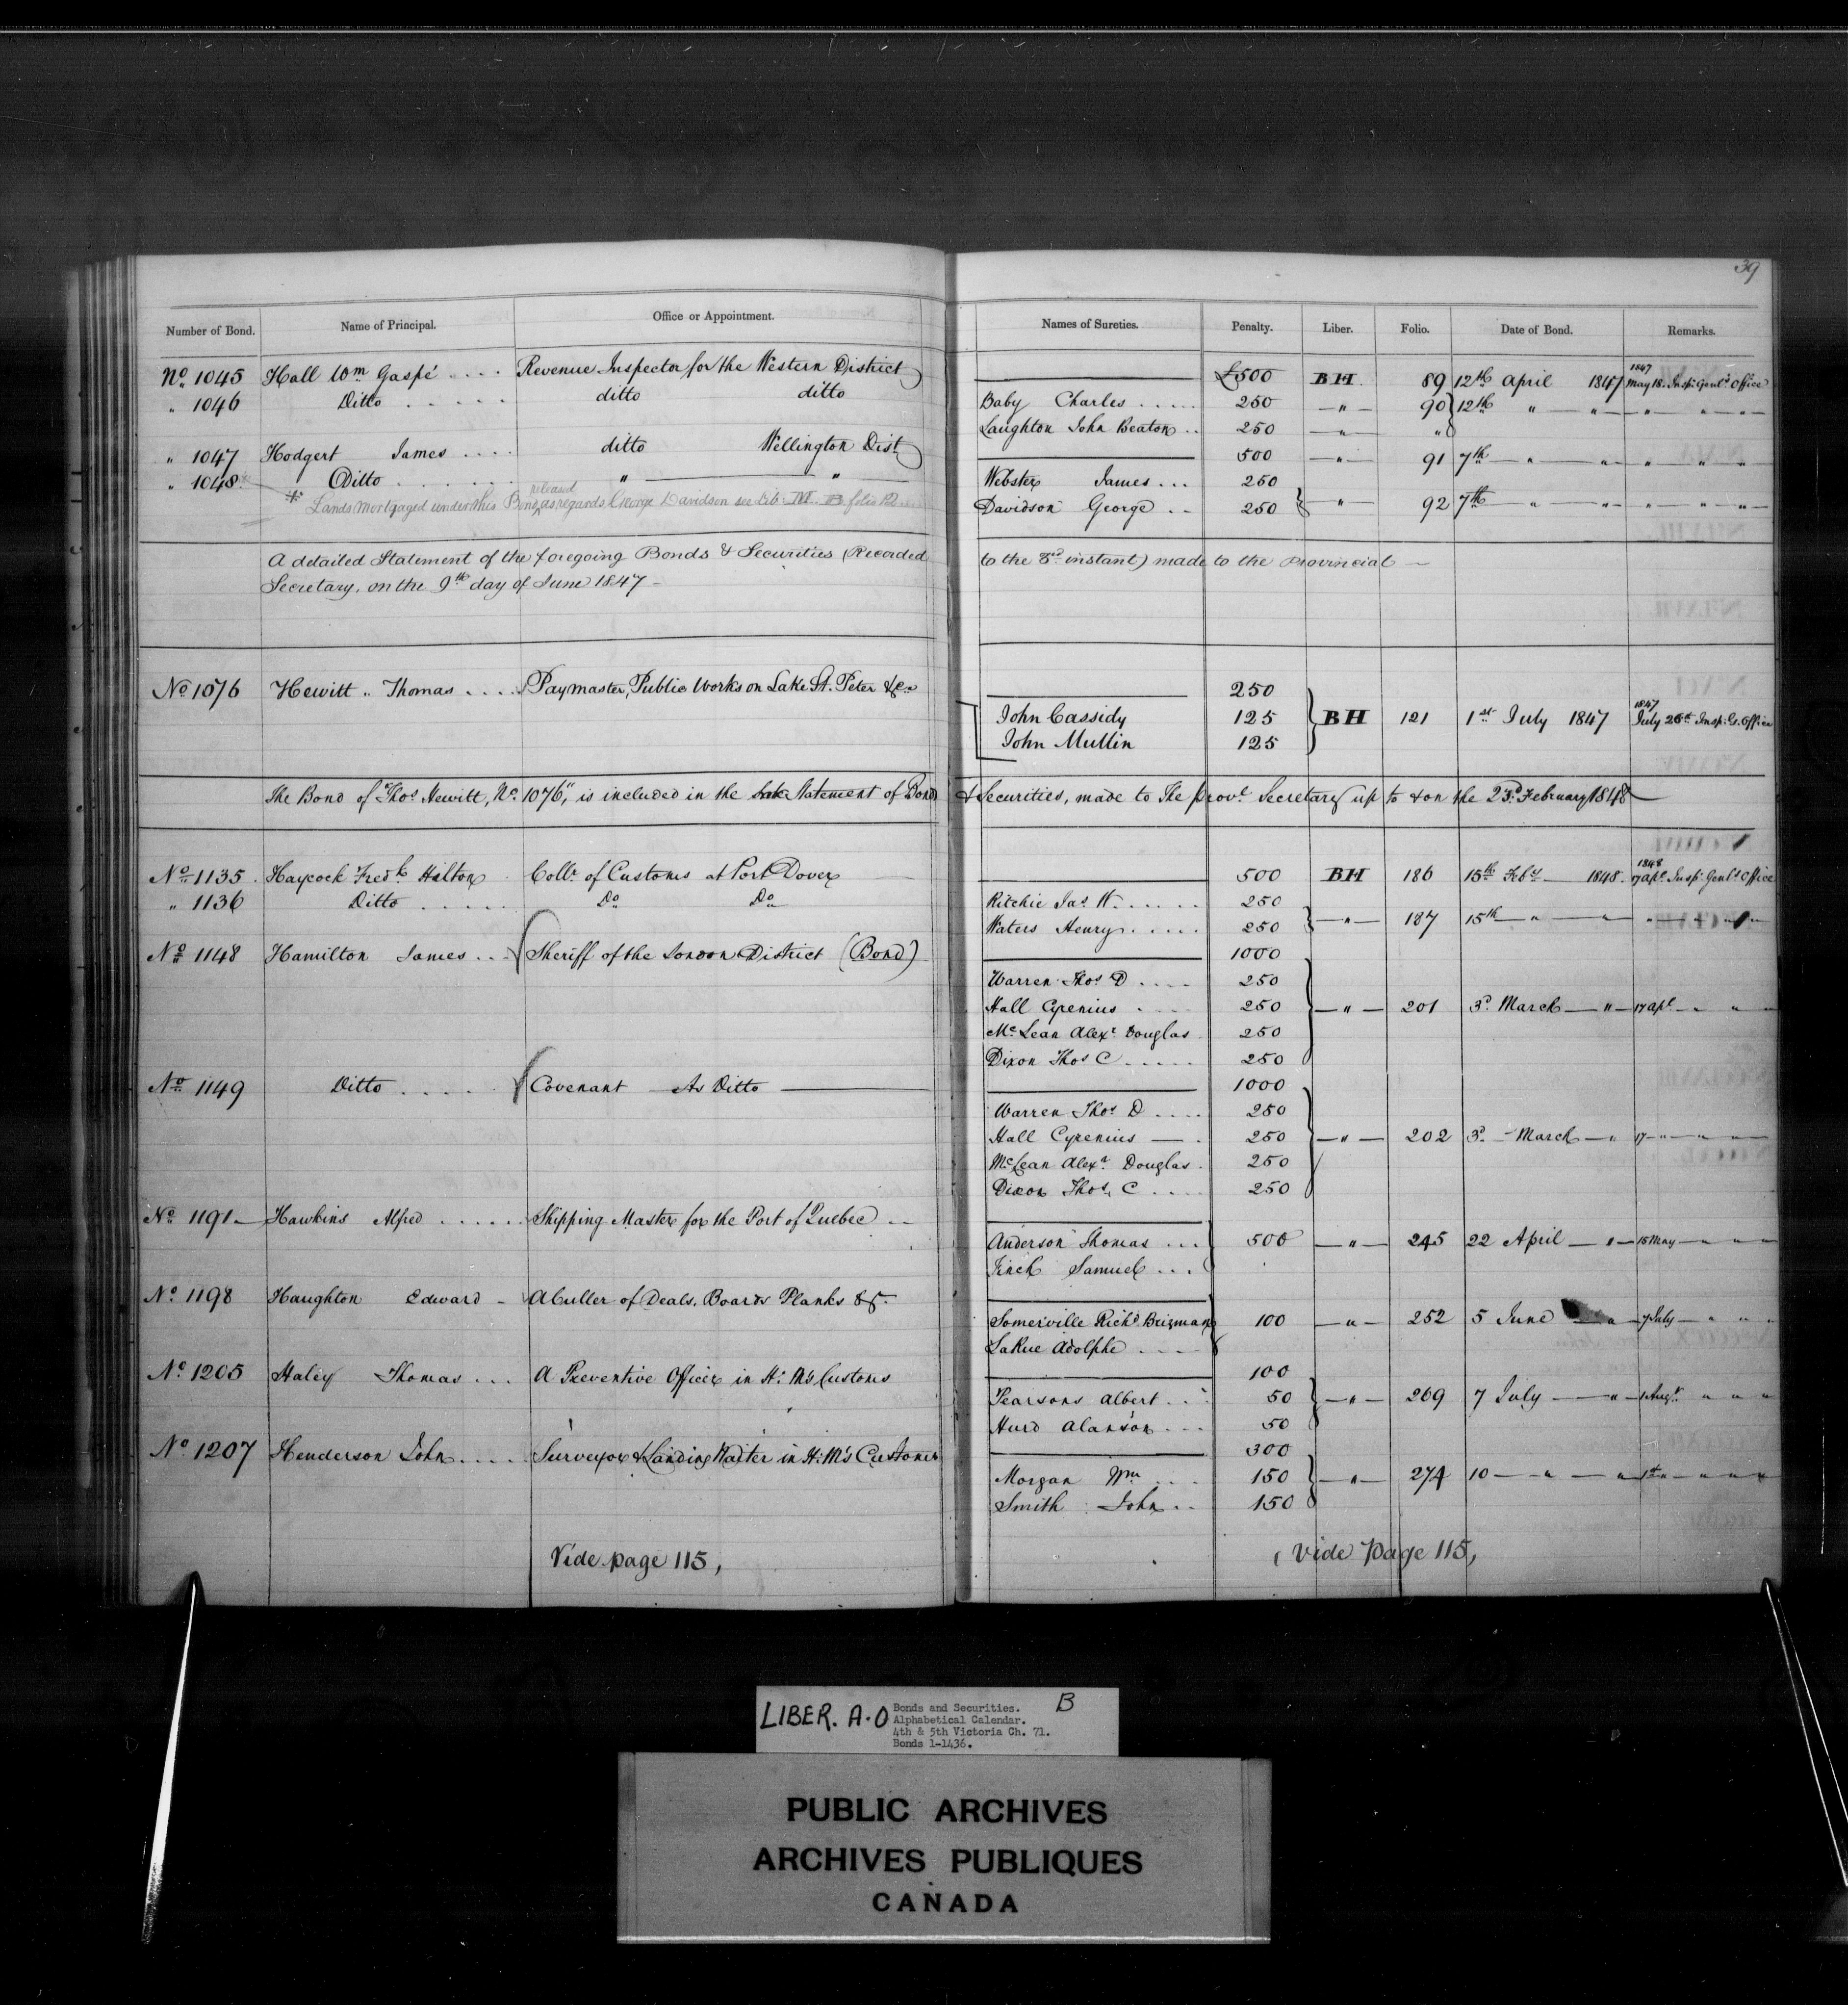 39
Number of Bond. Name of Principal. Office or Appointment. Names of Sureties. Penalty. Liber. Folio. Date of Bond. Remarks.
No. 1045 Hall Wm Gaspé .... Revenue Inspector for the Western District £500 BH. 89 12th April 1847 1847 May 18. Insp. Genl's Office
" 1046 Ditto ..... ditto ditto Baby Charles ..... 250 — " — 90 12th " — " — " — " — " —
Laughton John Beaton .. 250 — " — "
" 1047 Hodgert James .... ditto Wellington Dist. 500 — " — 91 7th — " — " — " " "
" 1048. * Ditto ...... " — " Webster James ... 250
* Lands Mortgaged under this Bond released as regards George Davidson see Lib. M. B folio 12 Davidson George .. 250 — " — 92 7th — " — " — " — " — " —
A detailed Statement of the foregoing Bonds & Securities (Recorded to the 8th instant) made to the Provincial —
Secretary, on the 9th day of June 1847 —
No. 1076 Hewitt " Thomas .... Paymaster, Public Works on Lake St. Peter &c. 250
John Cassidy 125 BH 121 1st July 1847 1847 July 26th Insp. G. Office
John Mullin 125
The Bond of "Thos. Hewitt, No. 1076," is included in the Statement of Bonds & Securities, made to the Prov'l Secretary up to & on the 23d February 1848 —
No. 1135 Haycock Fredk. Hilton Collr. of Customs at Port Dover 500 BH 186 15th Feby — 1848. 1848 17 Apl. Insp. Genl's Office
" 1136 Ditto ..... Do Do Ritchie Jas. W. ..... 250
Waters Henry ..... 250 — " — 187 15th — " — " — " — " — " —
No. 1148 Hamilton James ... Sheriff of the London District (Bond) 1000
Warren Thos. D .... 250
Hall Cyrenius .... 250 — " — 201 3d. March — " — 17 Apl — " " "
McLean Alexr. Douglas. 250
Dixon Thos. C ..... 250
No. 1149 Ditto ..... Covenant As Ditto — 1000
Warren Thos. D .... 250
Hall Cyrenius — . 250 — " — 202 3d. — March — " 17 — " — " — " —
McLean Alexr. Douglas. 250
Dixon Thos. C .... 250
No. 1191 — Hawkins Alfred ..... Shipping Master for the Port of Quebec ..
Anderson Thomas ... 500 — " — 245 22 April — " — 15 May — " — " — " —
Finch Samuel ...
No. 1198 Haughton Edward - A Culler of Deals, Boards Planks &c.
Somerville Richd. 100 — " — 252 5 June — " — 7 July — " " "
LaRue Adolphe ....
No. 1205 Haley Thomas ... A Preventive Officer in H. M's Customs 100
Pearsons Albert ... 50 — " — 269 7 July — " — 1 Augt. " " "
Hurd Alanson ... 50
No. 1207 Henderson John .... Surveyor & Landing Waiter in H. M's Customs 300
Morgan Wm .... 150 — " — 274 10 — " — " — " — " — " —
Smith John .. 150
Vide page 115, (Vide page 115,
LIBER. A.O Bonds and Securities. B
Alphabetical Calendar.
4th & 5th Victoria Ch. 71.
Bonds 1-1436.
PUBLIC ARCHIVES
ARCHIVES PUBLIQUES
CANADA